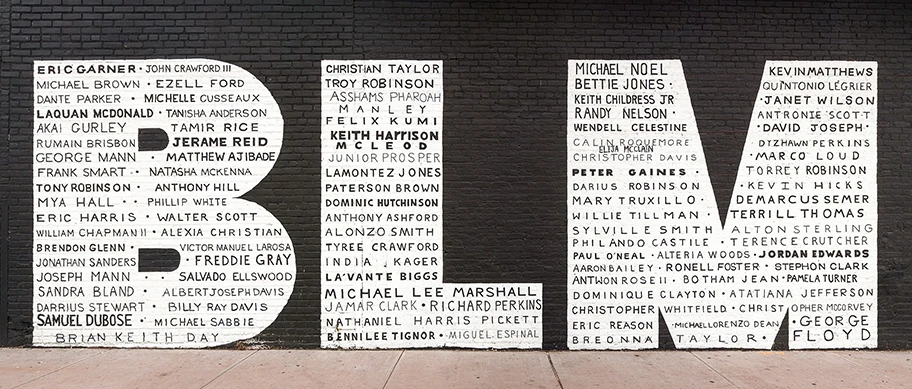 ERIC GARNER • JOHN CRAWFORD III
MICHAEL BROWN • EZELL FORD
DANTE PARKER • MICHELLE CUSSEAUX
LAQUAN MCDONALD • TANISHA ANDERSON
AKAI GURLEY TAMIR RICE
RUMAIN BRISBON JERAME REID
GEORGE MANN MATTHEW AJIBADE
FRANK SMART • NATASHA MCKENNA
TONY ROBINSON • ANTHONY HILL
MYA HALL • • PHILLIP WHITE
ERIC HARRIS • WALTER SCOTT
WILLIAM CHAPMAN II • ALEXIA CHRISTIAN
BRENDON GLENN • VICTOR MANUEL LAROSA
JONATHAN SANDERS • FREDDIE GRAY
JOSEPH MANN • • SALVADO ELLSWOOD
SANDRA BLAND • ALBERT JOSEPH DAVIS
DARRIUS STEWART • BILLY RAY DAVIS
SAMUEL DUBOSE • MICHAEL SABBIE
BRIAN KEITH DAY
CHRISTIAN TAYLOR
TROY ROBINSON
ASSHAMS PHAROAH
MANLEY
FELIX KUMI
KEITH HARRISON
MCLEOD
JUNIOR PROSPER
LAMONTEZ JONES
PATERSON BROWN
DOMINIC HUTCHINSON
ANTHONY ASHFORD
ALONZO SMITH
TYREE CRAWFORD
INDIA KAGER
LA'VANTE BIGGS
MICHAEL LEE MARSHALL
JAMAR CLARK • RICHARD PERKINS
NATHANIEL HARRIS PICKETT
BENNI LEE TIGNOR • MIGUEL ESPINAL
MICHAEL NOEL KEVIN MATTHEWS
BETTIE JONES • QUINTONIO LÉGRIER
KEITH CHILDRESS JR • JANET WILSON
RANDY NELSON • ANTRONIE SCOTT
WENDELL CELESTINE • DAVID JOSEPH •
CALIN ROQUEMORE DYZHAWN PERKINS
ELIJA MCCLAIN
CHRISTOPHER DAVIS • MARCO LOUD
PETER GAINES • TORREY ROBINSON
DARIUS ROBINSON • KEVIN HICKS
MARY TRUXILLO • DEMARCUS SEMER
WILLIE TILLMAN • TERRILL THOMAS
SYLVILLE SMITH ALTON STERLING
PHILANDO CASTILE • TERENCE CRUTCHER
PAUL O'NEAL • ALTERIA WOODS • JORDAN EDWARDS
AARON BAILEY • RONELL FOSTER • STEPHON CLARK
ANTWON ROSE II • BOTHAM JEAN • PAMELA TURNER
DOMINIQUE CLAYTON • ATATIANA JEFFERSON
CHRISTOPHER WHITFIELD • CHRISTOPHER MCCORVEY
ERIC REASON • MICHAEL LORENZO DEAN • GEORGE
BREONNA TAYLOR • FLOYD